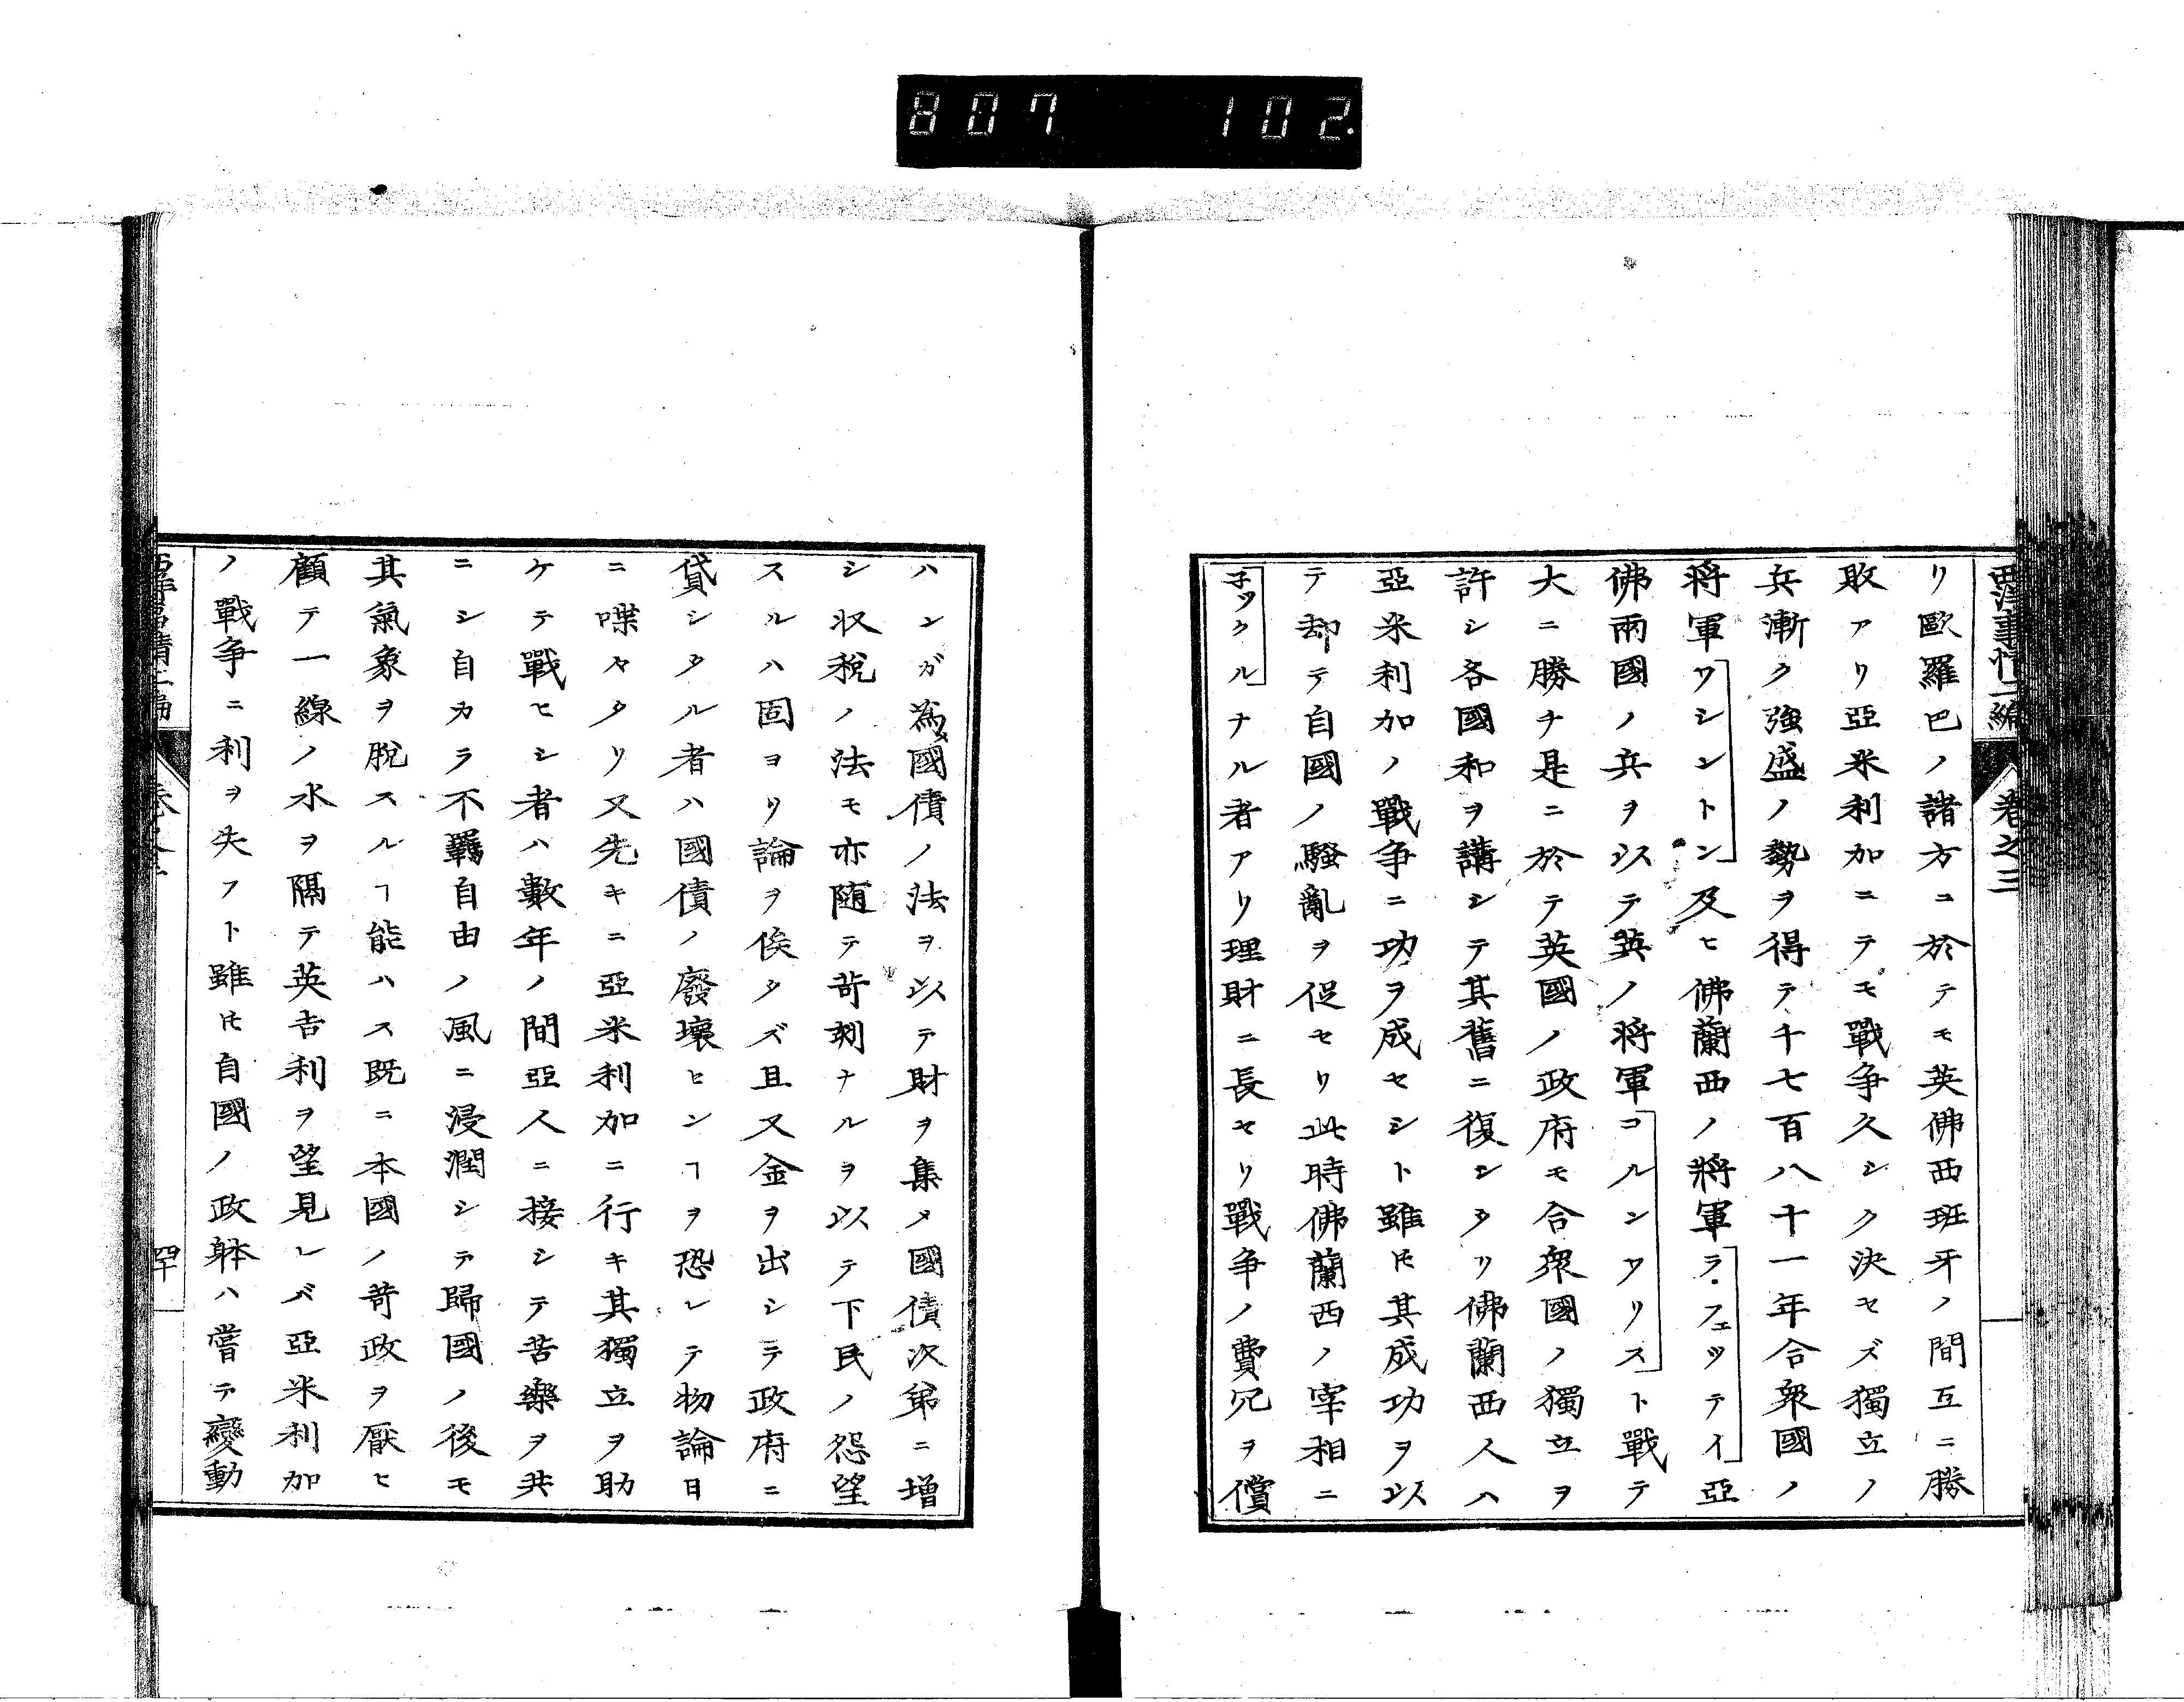 807 102.
西洋事情二編 巻之三
リ歐羅巴ノ諸方ニ於テモ英佛西班牙ノ間互ニ勝
敗アリ亞米利加ニテモ戰争久シク決セズ獨立ノ
兵漸ク強盛ノ勢ヲ得テ千七百八十一年合衆國ノ
将軍ワシントン及ヒ佛蘭西ノ將軍ラ・フェッテイ亞
佛兩國ノ兵ヲ以テ英ノ将軍コルンワリスト戰テ
大ニ勝チ是ニ於テ英國ノ政府モ合衆國ノ獨立ヲ
許シ各國和ヲ講シテ其舊ニ復シタリ佛蘭西人ハ
亞米利加ノ戰争ニ功ヲ成セシト雖𪜈其成功ヲ以
テ却テ自國ノ騒亂ヲ促セリ此時佛蘭西ノ宰相ニ
子ックルナル者アリ理財ニ長セリ戰争ノ費冗ヲ償
ハンガ為メ國債ノ法ヲ以テ財ヲ集メ國債次第ニ増
シ収税ノ法モ亦随テ苛刻ナルヲ以テ下民ノ怨望
スルハ固ヨリ論ヲ俟タズ且又金ヲ出シテ政府ニ
貸シタル者ハ國債ノ廢壞センヿヲ恐レテ物論日
ニ喋々タリ又先キニ亞米利加ニ行キ其獨立ヲ助
ケテ戰ヒシ者ハ數年ノ間亞人ニ接シテ苦樂ヲ共
ニシ自カラ不羈自由ノ風ニ浸潤シテ歸國ノ後モ
其氣象ヲ脱スルヿ能ハス既ニ本國ノ苛政ヲ厭ヒ
顧テ一線ノ水ヲ隔テ英吉利ヲ望見レバ亞米利加
ノ戰争ニ利ヲ失フト雖𪜈自國ノ政躰ハ嘗テ變動